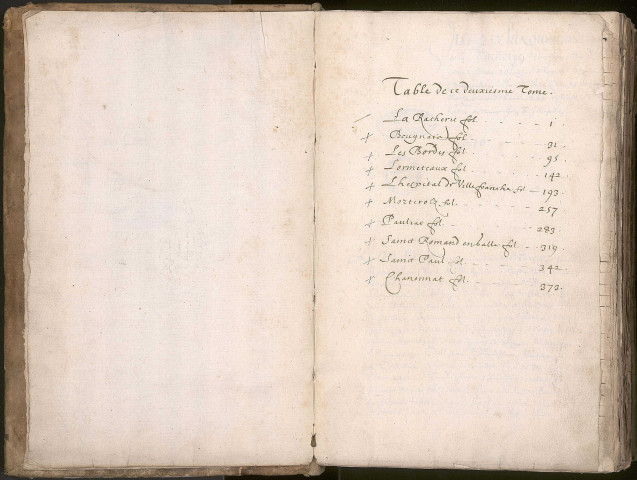 Table de ce deuxiesme Tome.
La Racherie fol - - - - 1
Bougnard fol - - - - 31
Les Bordes fol - - - - 95
Lormeteaux fol - - - - 142
Lhospital de Villefranche fol - - 193
Morterolz fol - - - - 257
Pauliac fol - - - - 283
Sainct Romand en halle fol - - 319
Sainct Paul fol - - - - 342
Chansinat fol - - - - 373